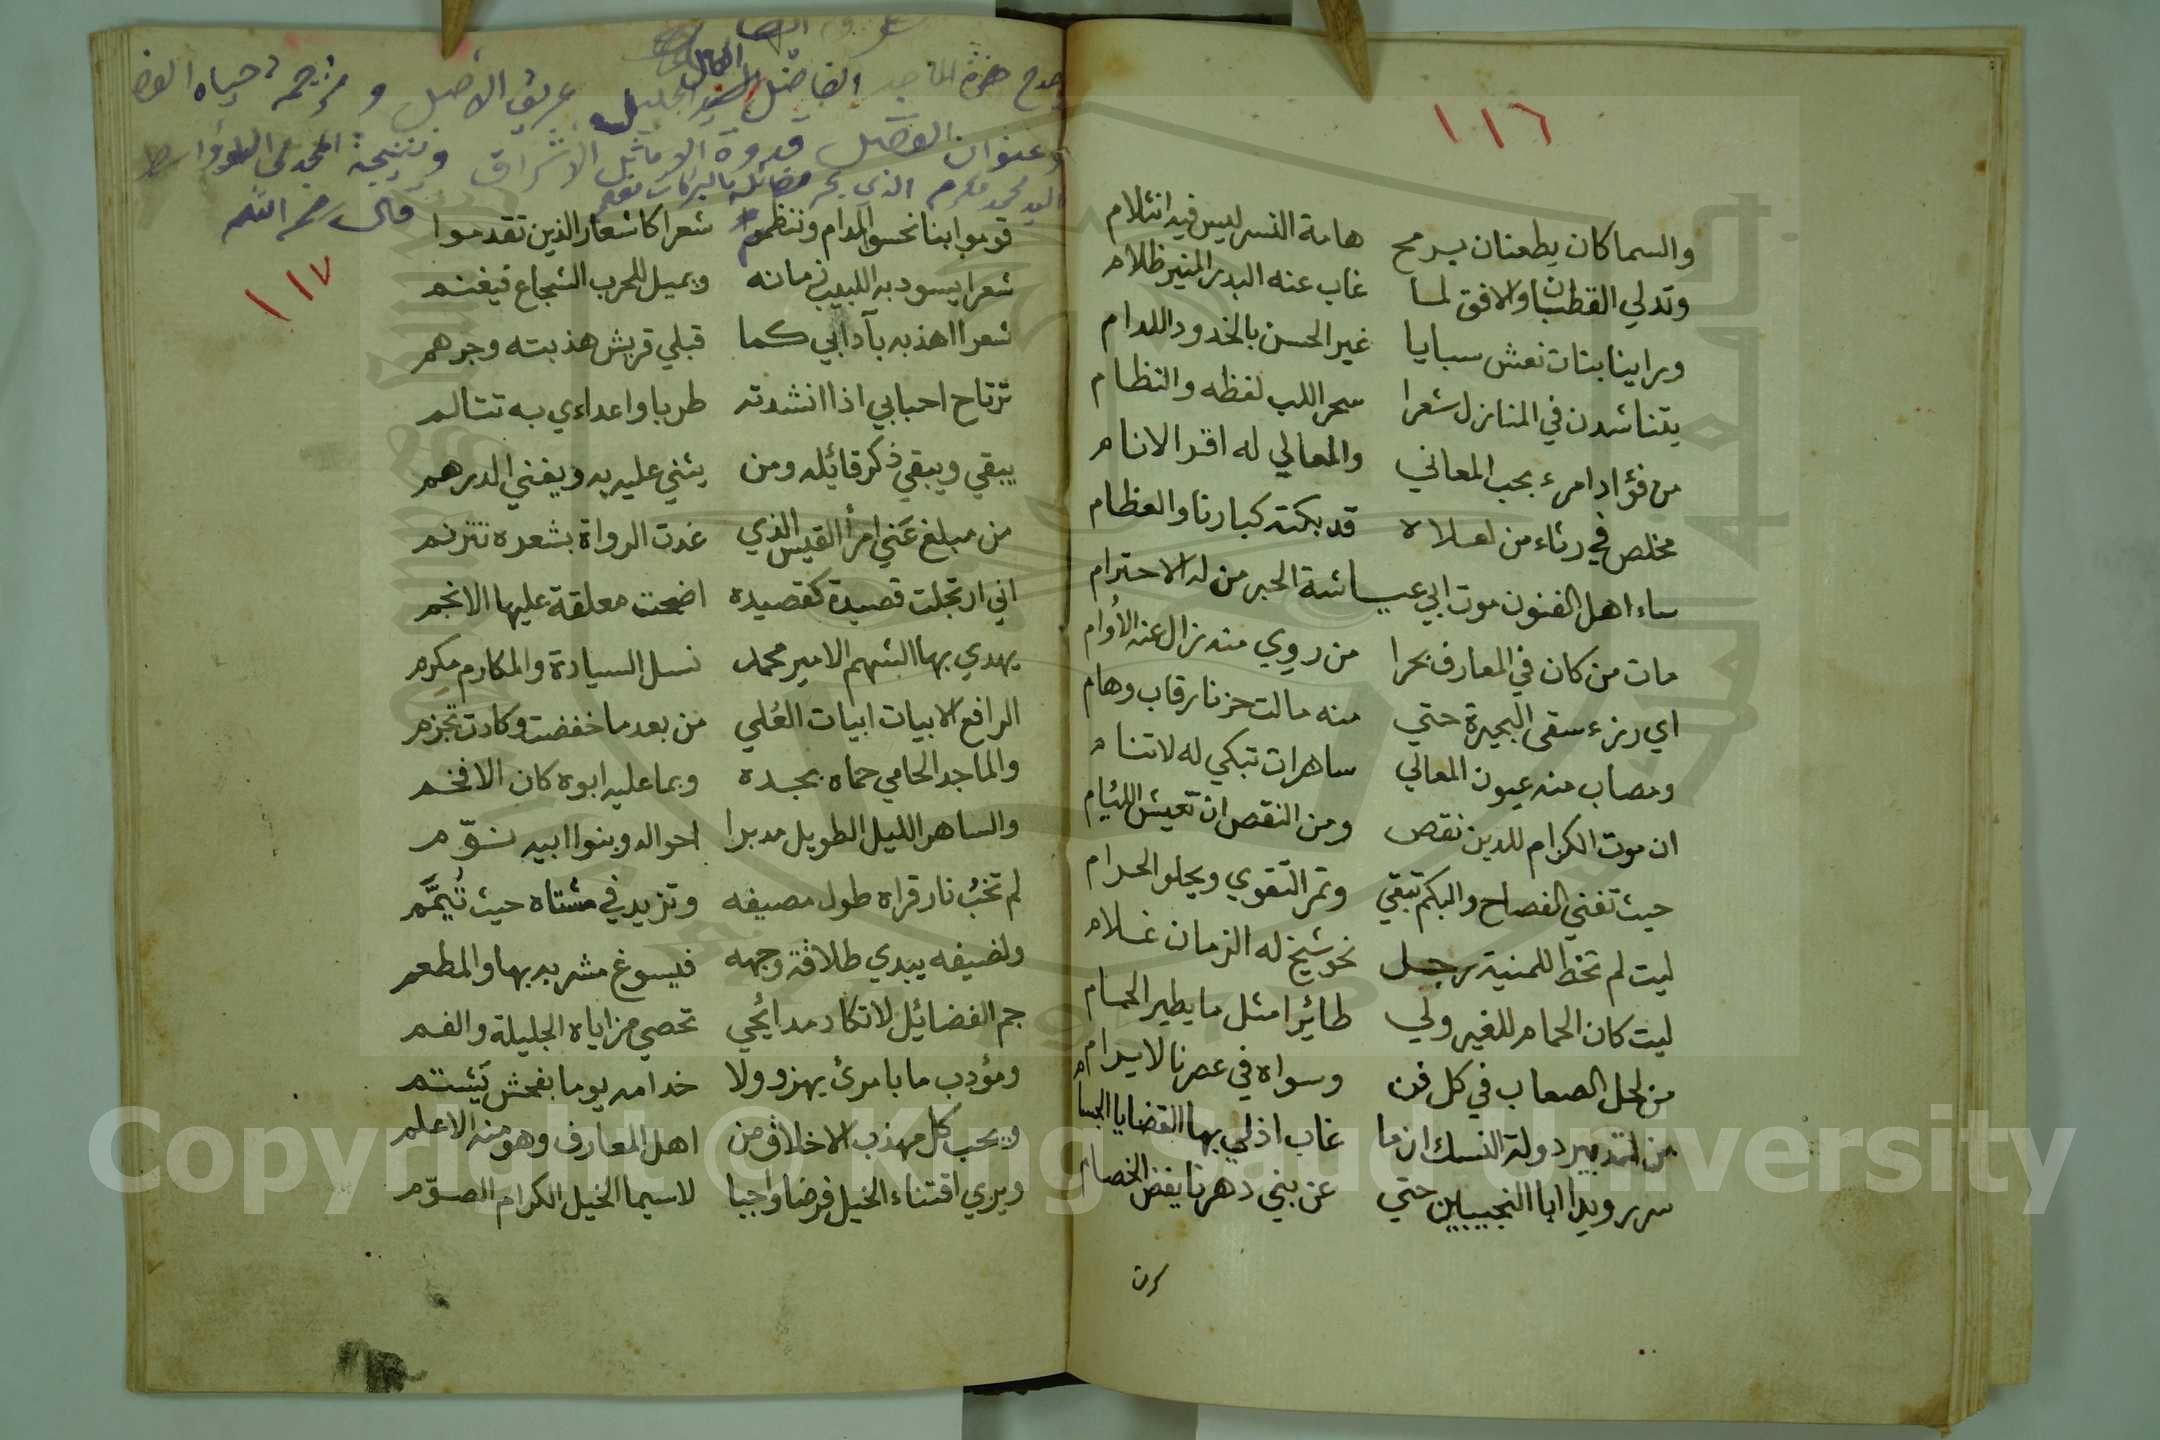 ١١٦
والسماكان يطعنان برمح هامة النسر ليس فيه انثلام
وتدلي القطبان والافق لما غاب عنه البدر المنير ظلام
وبراينا بنات نعش سبايا غير الحسن بالخدود اللدام
يتناشدن في المنازل شعرا سحر اللب لفظه والنظام
من فؤاد امرء بحب المعاني والمعالي له اقر الانام
مخلص في رثاء من لعلاه قد بكته كبارنا والعظام
ساء اهل الفنون موت ابي عيا شة الحبر من له الاحترام
مات من كان في المعارف بحرا من روي منه زال عنه الأوام
اي رزء سقى البحيرة حتي منه مالت حزنا رقاب وهام
ومصاب منه عيون المعالي ساهرات تبكي له لاتنام
ان موت الكرام للدين نقص ومن النقص ان تعيش اللئام
حيث تفني الفصاح والبكم تبقي وتمر التقوي ويحلو الحرام
ليت لم تخط للمنية رجل نحو شيخ له الزمان غلام
ليت كان الحمام للغير ولي طائرا مثل ما يطير الحمام
من لحل الصعاب في كل فن وسواه في عصرنا لايرام
من لتدبير دولة النسك ان ما غاب اذلي بها القضايا الجسام
سر رويدا ابا النجيبين حتي عن بني دهرنا يفض الخصام
الفاضل الجليل عريق الأصل و
وعنوان الفضل قدوة الأماثل الأشراق ونتيجة المجد
السيد محمد مكرم الذي
قال رحمه الله
١١٧
قوموا بنا نحسو المدام وننظم شعرا كاشعار الذين تقدموا
شعرا يسود به اللبيب زمانه ويميل للحرب الشجاع فيغنم
شعرا اهذبه بآدابي كما قبلي قريش هذبته وجرهم
ترتاح احبابي اذا انشدته طربا واعداءي به تتالم
يبقي ويبقي ذكر قائله ومن يثني عليه به ويفني الدرهم
من مبلغ عني امرأ القيس الذي غدت الرواة بشعره تترنم
اني ارتجلت قصيدة كقصيده اضحت معلقة عليها الانجم
يهدي بها الشهم الامير محمد نسل السيادة والمكارم مكرم
الرافع الابيات ابيات العُلي من بعد ما خفضت وكادت تجزم
والماجد الحامي حماه بجده وبما عليه ابوه كان الافخم
والساهر الليل الطويل مدبرا احواله وبنوا ابيه نوّم
لم تخبُ نار قراه طول مصيفه وتزيد في مشتاه حيث تُيمَّم
ولضيفه يبدي طلاقة وجهه فيسوغ مشربه بها والمطعم
جم الفضائل لا تكاد مدائحي تحصي مزاياه الجليلة والفم
ومؤدب ما بامرئ يهزو ولا خدامه يوما بفحش يَشتم
ويحب كل مهذب الاخلاق من اهل المعارف وهو منه الاعلم
ويري اقتناء الخيل فرضا واجبا لاسيما الخيل الكرام الصوّم
Copyright © King Saud University